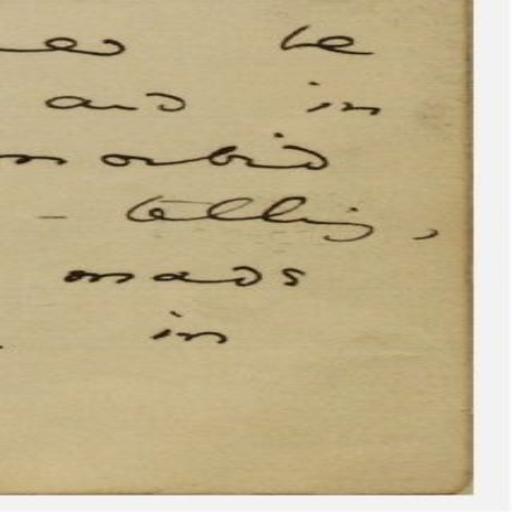 be
and in
morbid
- telling,
mads
in